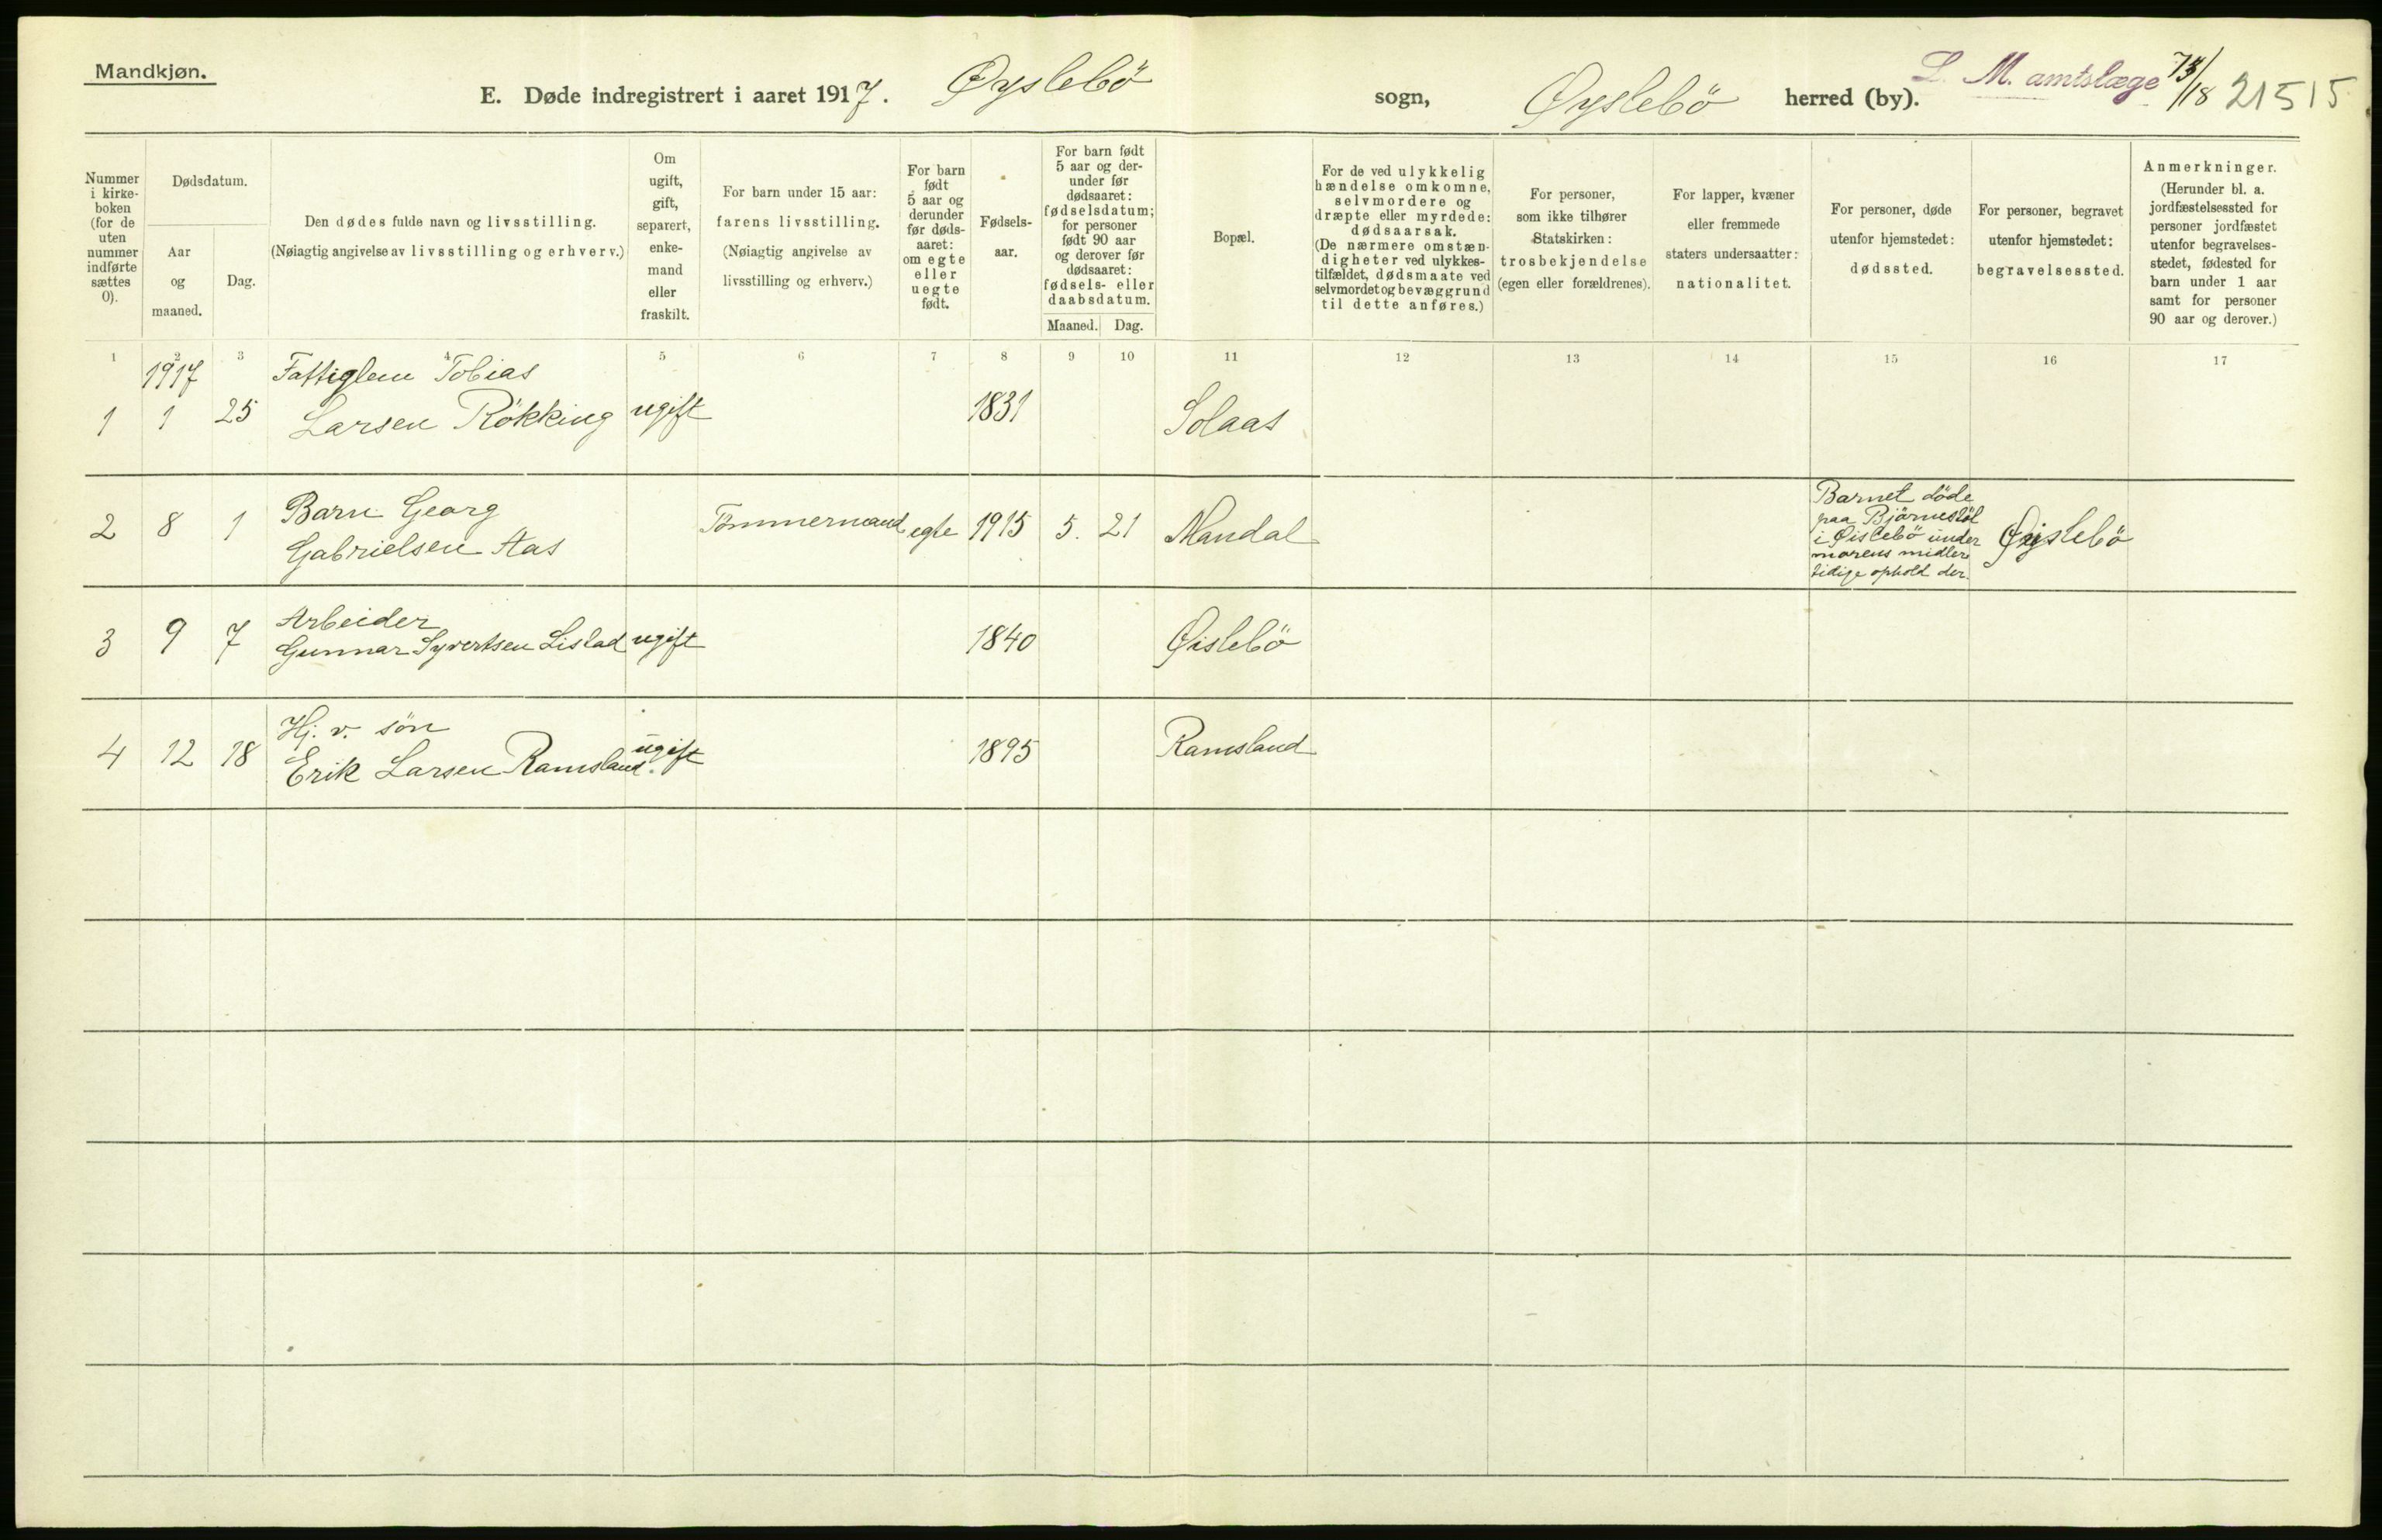 Mandkjøn.
E. Døde indregistrert i aaret 1917. Øyslebö sogn, Øyslebö herred (by).
L. M. amtslæge
21515
Nummer
i kirke-
boken
(for de
uten
nummer
indførte
sættes
0).
Dødsdatum.
Aar
og
maaned.
Dag.
Den dødes fulde navn og livsstilling.
(Nøiagtig angivelse av livsstilling og erhverv.)
Om
ugift,
gift,
separert,
enke-
mand
eller
fraskilt.
For barn under 15 aar:
farens livsstilling.
(Nøiagtig angivelse av
livsstilling og erhverv.)
For barn
født
5 aar og
derunder
før døds-
aaret:
om egte
eller
uegte
født.
Fødsels-
aar.
For barn født
5 aar og der-
under før
dødsaaret:
fødselsdatum;
for personer
født 90 aar
og derover før
dødsaaret:
fødsels- eller
daabsdatum.
Maaned. Dag.
Bopæl.
For de ved ulykkelig
hændelse omkomne,
selvmordere og
dræpte eller myrdede:
dødsaarsak.
(De nærmere omstæn-
digheter ved ulykkes-
tilfældet, dødsmaate ved
selvmordet og bevæggrund
til dette anføres.)
For personer,
som ikke tilhører
Statskirken:
trosbekjendelse
(egen eller forældrenes).
For lapper, kvæner
eller fremmede
staters undersaatter:
nationalitet.
For personer, døde
utenfor hjemstedet:
dødssted.
For personer, begravet
utenfor hjemstedet:
begravelsessted.
Anmerkninger.
(Herunder bl. a.
jordfæstelsessted for
personer jordfæstet
utenfor begravelses-
stedet, fødested for
barn under 1 aar
samt for personer
90 aar og derover.)
1 2 3 4 5 6 7 8 9 10 11 12 13 14 15 16 17
1917 Fattiglem Tobias
1 1 25 Larsen Rökking ugift 1831 Solaas
2 8 1 Barn Georg
Gabrielsen Aas
Tömmermand egte 1915 5. 21 Mandal
Barnet döde
paa Bjärnestöl
i Øislebö under
morens midler
tidige ophold der.
Øyslebö
3 9 7 Arbeider
Gunnar Syvertsen Lislad ugift 1840 Øislebö
4 12 18 Hj. v. sön
Erik Larsen Ramsland. ugift 1895 Ramsland